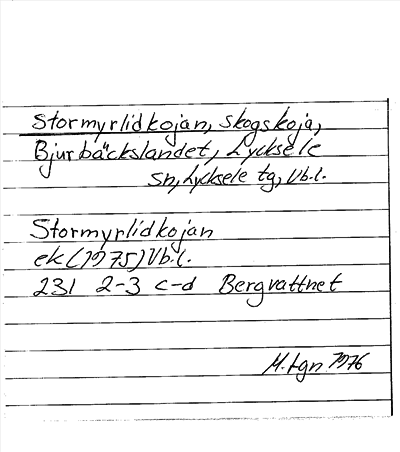 Stormyrlidkojan, skogskoja,
Bjurbäckslandet, Lycksele
sn, Lycksele tg, Vb.l.
Stormyrlidkojan
ek (1975) Vb.l.
231 2-3 c-d Bergvattnet
M.tgn 1976